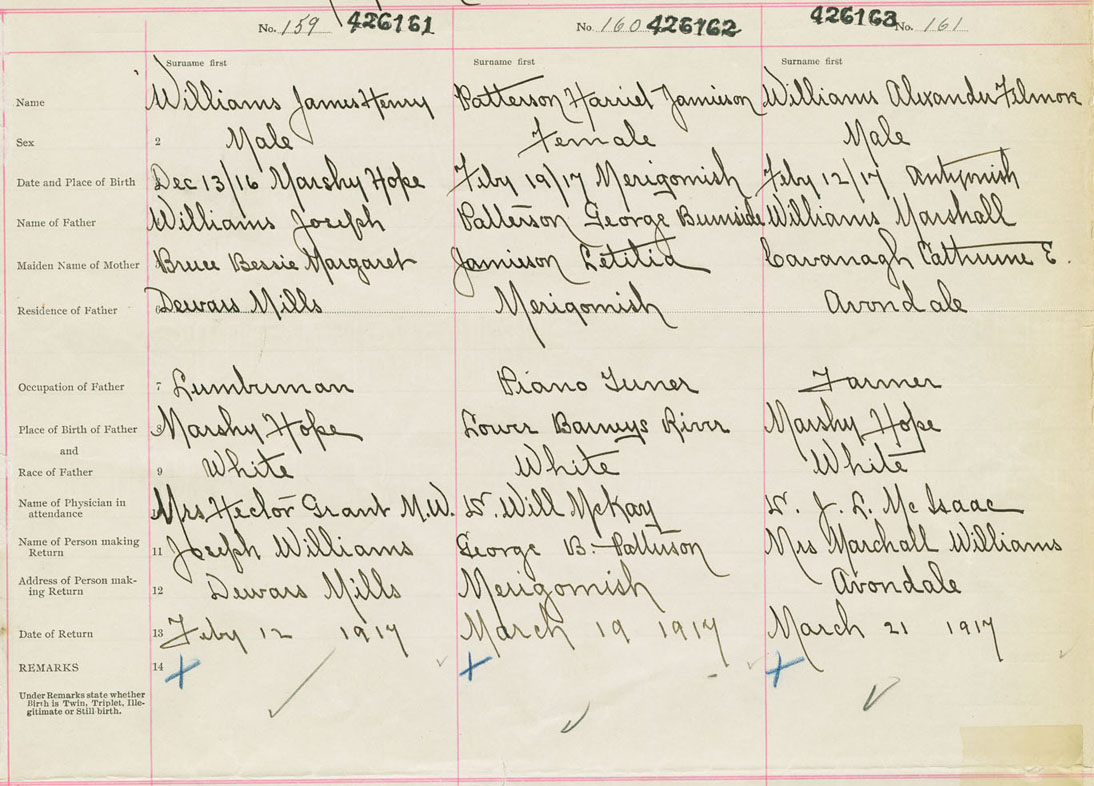 No. 159 426161 No. 160 426162 426163 No. 161
Surname first Surname first Surname first
Name Williams James Henry Patterson Harriet Jamieson Williams Alexander Filmore
Sex 2 Male Female Male
Date and Place of Birth Dec 13/16 Marshy Hope Feby 19/17 Merigomish Feby 12/17 Antigonish
Name of Father Williams Joseph Patterson George Burnside Williams Marshall
Maiden Name of Mother Bruce Bessie Margaret Jamieson Letitia Cavanagh Cathrine E.
Residence of Father 6 Dewars Mills Merigomish Avondale
Occupation of Father 7 Lumberman Piano Tuner Farmer
Place of Birth of Father 8 Marshy Hope Lower Barneys River Marshy Hope
and
Race of Father 9 White White White
Name of Physician in Mrs Hector Grant M.W. Dr. Will McKay Dr. J. L. McIsaac
attendance
Name of Person making Joseph Williams George B. Patterson Mrs Marchall Williams
Return 11
Address of Person mak- Dewars Mills Merigomish Avondale
ing Return 12
Date of Return 13 Feby 12 1917 March 19 1917 March 21 1917
REMARKS 14
Under Remarks state whether
Birth is Twin, Triplet, Ille-
gitimate or Still-birth.